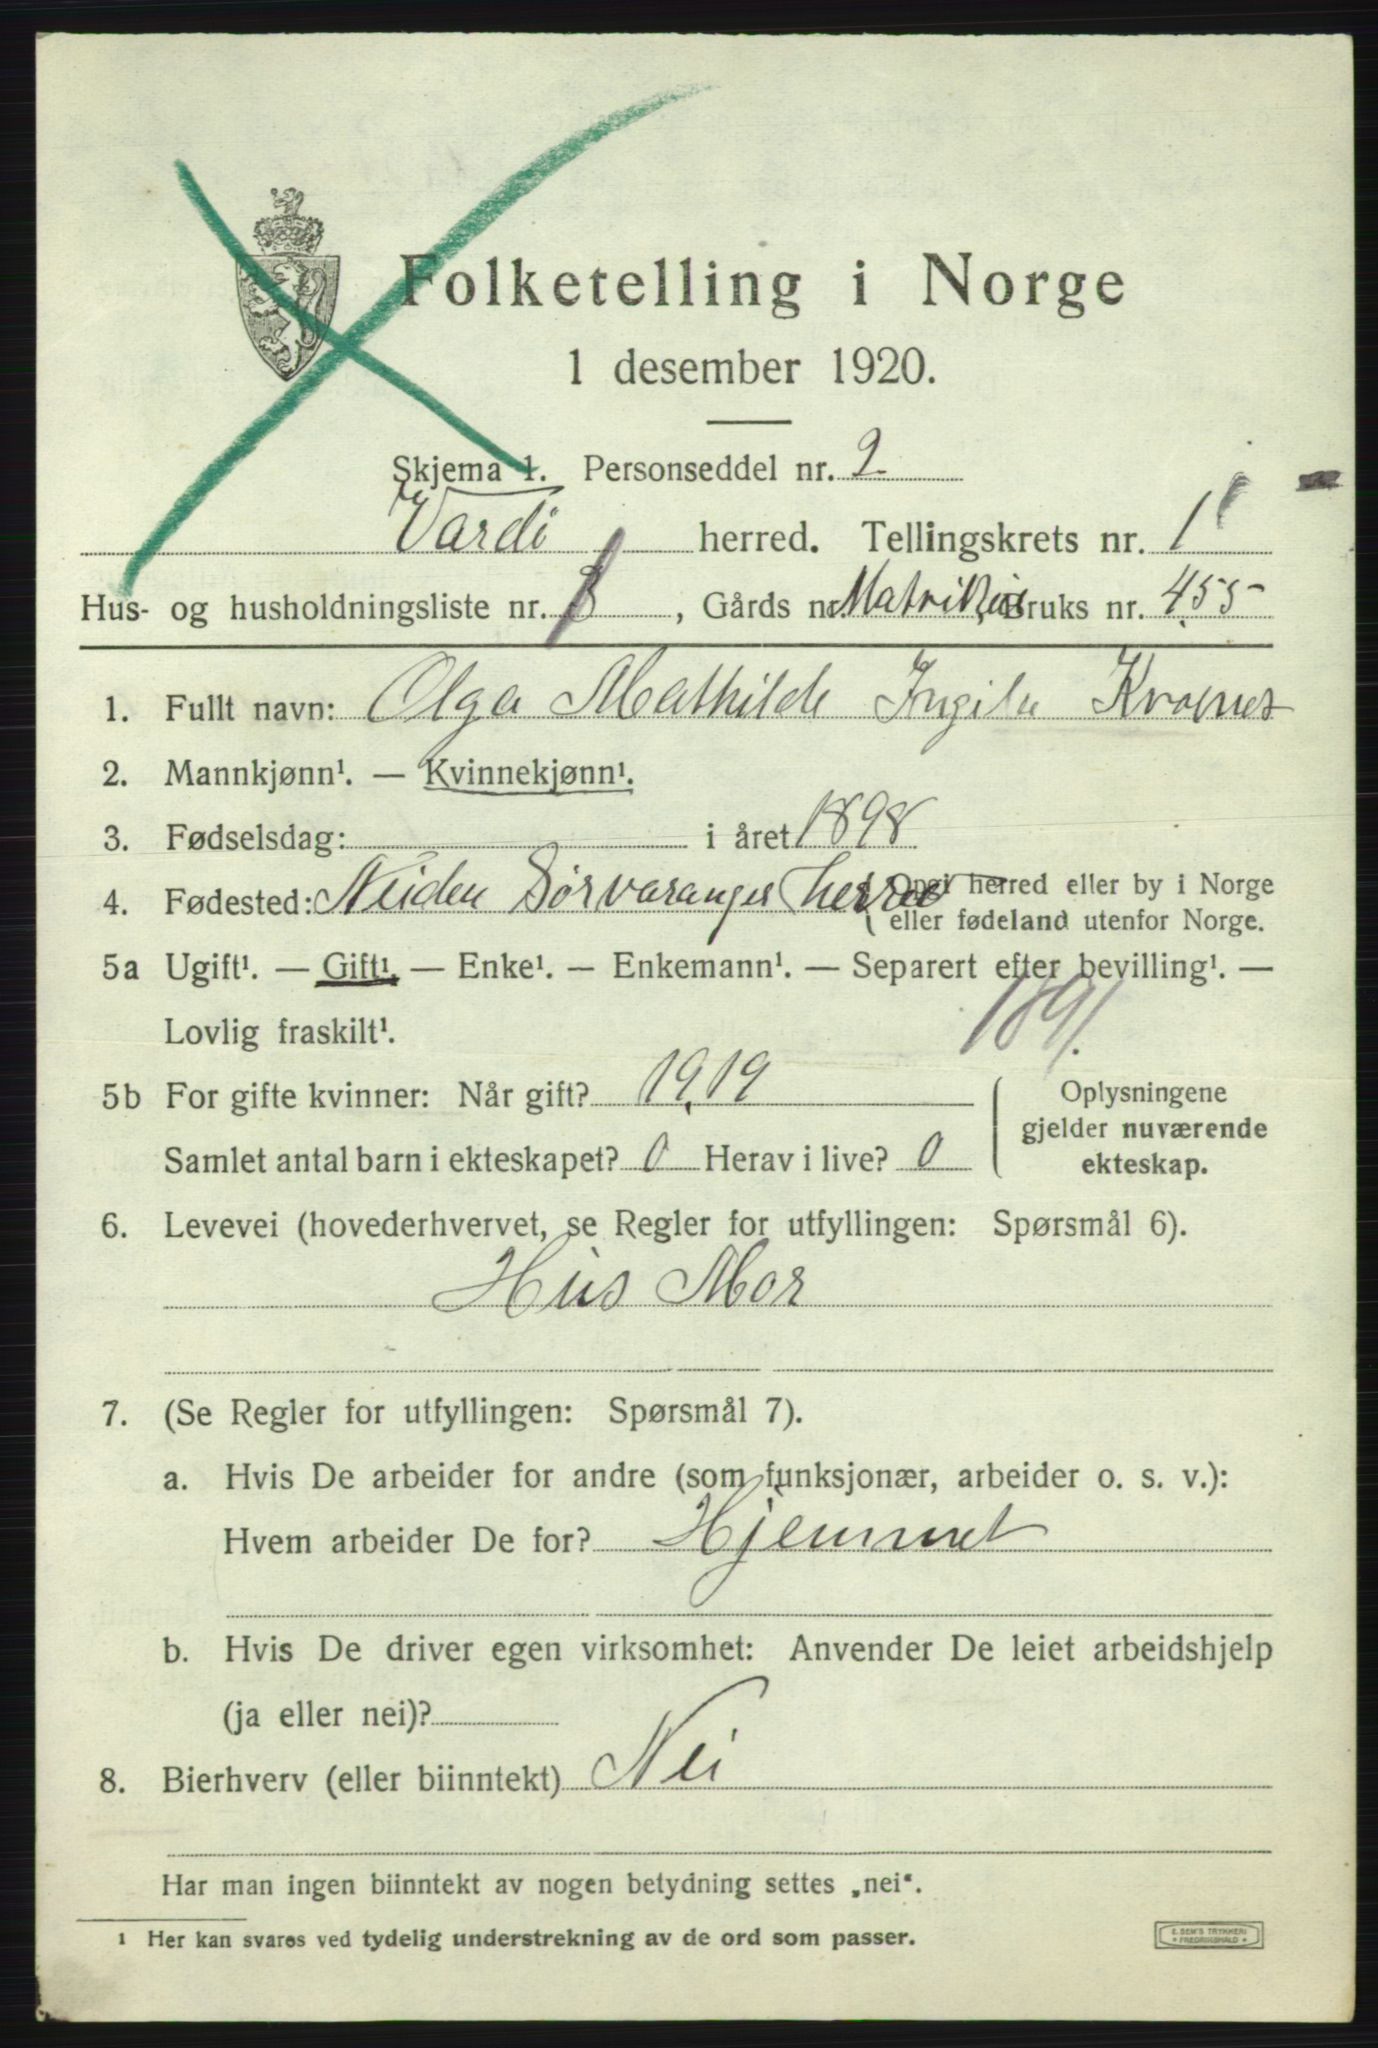 Folketelling i Norge
1 desember 1920.
Skjema 1. Personseddel nr. 2
Vardö herred. Tellingskrets nr. 1
Hus- og husholdningsliste nr. , Gårds nr. Bruks nr. 455
1. Fullt navn: Olga Mathilde
2. Mannkjønn¹. — Kvinnekjønn¹.
3. Fødselsdag: i året 1898
4. Fødested: Neiden Sørvaranger herred
Opgi herred eller by i Norge
eller fødeland utenfor Norge.
5a Ugift¹. — Gift¹. — Enke¹. — Enkemann¹. — Separert efter bevilling¹. —
Lovlig fraskilt¹.
1891.
5b For gifte kvinner: Når gift? 1919
Samlet antal barn i ekteskapet? 0 Herav i live? 0
Oplysningene
gjelder nuværende
ekteskap.
6. Levevei (hovederhvervet, se Regler for utfyllingen: Spørsmål 6).
Hus Mor
7. (Se Regler for utfyllingen: Spørsmål 7).
a. Hvis De arbeider for andre (som funksjonær, arbeider o. s. v.):
Hvem arbeider De for? Hjemmet
b. Hvis De driver egen virksomhet: Anvender De leiet arbeidshjelp
(ja eller nei)?
8. Bierhverv (eller biinntekt) Nei
Har man ingen biinntekt av nogen betydning settes „nei“.
¹ Her kan svares ved tydelig understrekning av de ord som passer.
E. SEM'S TRYKKERI
* FREDRIKSHALD *